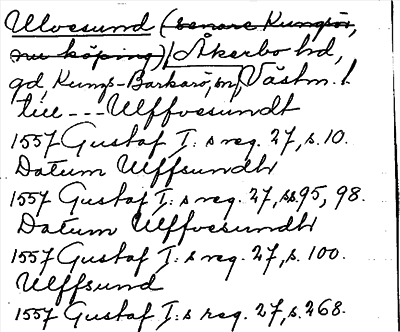 Ulvesund (senare Kungsör,
nu köping) Åkerbo hd,
gd, Kungs-Barkarö, sn, Västm. l.
till --- Ulffvesundt
1557 Gustaf I:s reg. 27, s. 10.
Datum Ulffsundh
1557 Gustaf I:s reg. 27, ss. 95, 98.
Datum Ulffvesundh
1557 Gustaf I:s reg. 27, s. 100.
Ulffsund
1557 Gustaf I:s reg. 27, s. 268.